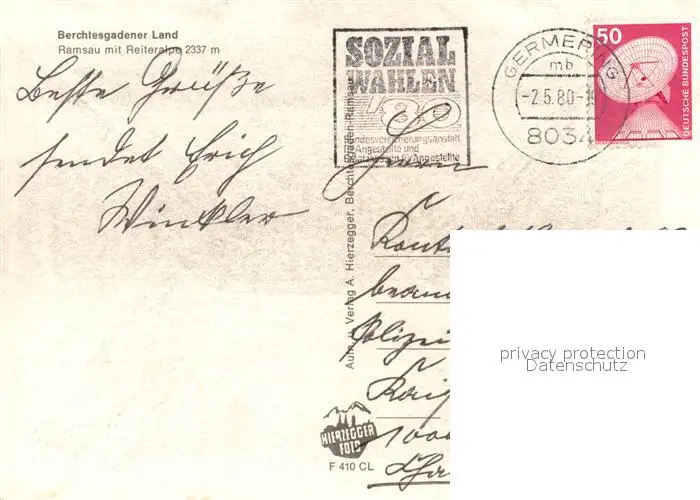 Berchtesgadener Land
Ramsau mit Reiteralpe 2337 m
Beste Grüße
sendet Erich
Winkler
SOZIAL
WAHLEN
'80
Bundesversicherungsanstalt
Angestellte und
Ersatzkassen für Angestellte
GERMERING
mb
-2.5.80-
8034
50
DEUTSCHE BUNDESPOST
Herrn
Polizei
Auto u. Verlag A. Hierzegger, Berchtesgaden-Ramsau
HIERZEGGER
FOTO
F 410 CL
privacy protection
Datenschutz